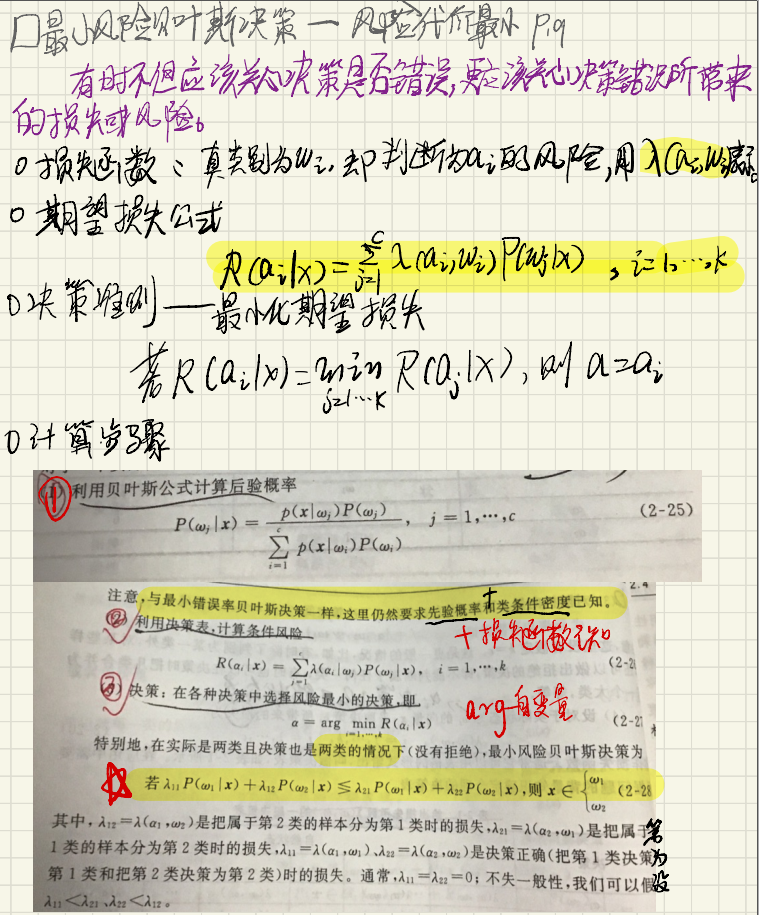 □最小风险贝叶斯决策 — 风险代价最小 P19
有时不但应该关心决策是否错误,更应该关心决策错误所带来
的损失或风险。
○ 损失函数: 真类别为wi,却判断为ai的风险,用λ(ai,wi)表示。
○ 期望损失公式
R(ai|x)=∑_{j=1}^{c} λ(ai,wi)P(wj|x) , i=1,…,k
○决策准则——最小化期望损失
若R(ai|x)=min_{j=1…k} R(aj|x), 则 a=ai
○计算步骤
① 利用贝叶斯公式计算后验概率
P(ωj|x) = p(x|ωj)P(ωj) / ∑_{i=1}^{c} p(x|ωi)P(ωi), j=1,…,c (2-25)
注意,与最小错误率贝叶斯决策一样,这里仍然要求先验概率和类条件密度已知。
+
② 利用决策表,计算条件风险
+损失函数已知
R(αi|x) = ∑_{j=1}^{c} λ(αi|ωj)P(ωj|x), i=1,…,k (2-2
③ 决策:在各种决策中选择风险最小的决策,即
arg-自变量
α = arg min_{i=1,…,k} R(αi|x) (2-2
特别地,在实际是两类且决策也是两类的情况下(没有拒绝),最小风险贝叶斯决策为
若 λ11P(ω1|x)+λ12P(ω2|x)≶λ21P(ω1|x)+λ22P(ω2|x),则 x∈{ω1 ω2 (2-28
其中,λ12=λ(α1,ω2)是把属于第 2 类的样本分为第 1 类时的损失,λ21=λ(α2,ω1)是把属于第
1 类的样本分为第 2 类时的损失,λ11=λ(α1,ω1)、λ22=λ(α2,ω2)是决策正确(把第 1 类决策为
第 1 类和把第 2 类决策为第 2 类)时的损失。通常,λ11=λ22=0;不失一般性,我们可以假设
λ11<λ21,λ22<λ12。